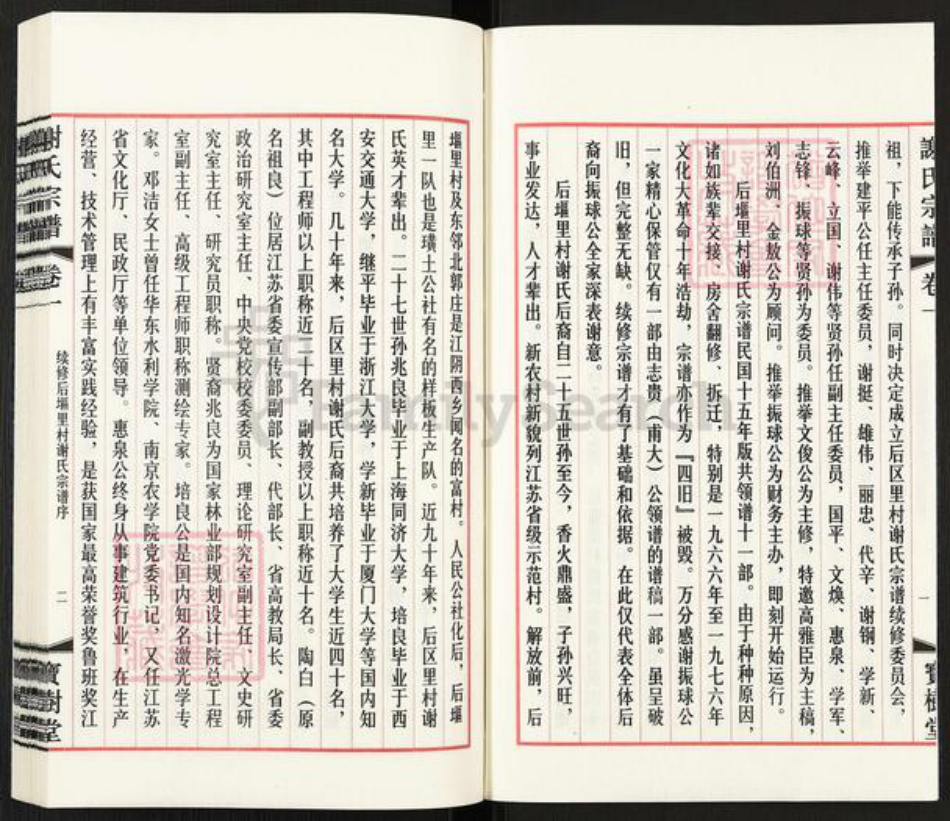 谢氏宗谱
卷一
一
寶樹堂
祖，下能传承子孙。同时决定成立后区里村谢氏宗谱续修委员会，
推举建平公任主任委员，谢挺、雄伟、丽忠、代辛、谢钢、学新、
云峰、立国、谢伟等贤孙任副主任委员，国平、文焕、惠泉、学军、
志锋、振球等贤孙为委员。推举文俊公为主修，特邀高雅臣为主稿，
刘伯洲、金敖公为顾问。推举振球公为财务主办，即刻开始运行。
后堰里村谢氏宗谱民国十五年版共领谱十一部。由于种种原因，
诸如族辈交接、房舍翻修、拆迁，特别是一九六六年至一九七六年
文化大革命十年浩劫，宗谱亦作为『四旧』被毁。万分感谢振球公
一家精心保管仅有一部由志贵（甫大）公领谱的谱稿一部。虽呈破
旧，但完整无缺。续修宗谱才有了基础和依据。在此仅代表全体后
裔向振球公全家深表谢意。
后堰里村谢氏后裔自二十五世孙至今，香火鼎盛，子孙兴旺，
事业发达，人才辈出。新农村新貌列江苏省级示范村。解放前，后
堰里村及东邻北郭庄是江阴西乡闻名的富村。人民公社化后，后堰
里一队也是璜土公社有名的样板生产队。近九十年来，后区里村谢
氏英才辈出。二十七世孙兆良毕业于上海同济大学，培良毕业于西
安交通大学，继平毕业于浙江大学，学新毕业于厦门大学等国内知
名大学。几十年来，后区里村谢氏后裔共培养了大学生近四十名，
其中工程师以上职称近二十名，副教授以上职称近十名。陶白（原
名祖良）位居江苏省委宣传部副部长、代部长、省高教局长、省委
政治研究室主任、中央党校校委委员、理论研究室副主任、文史研
究室主任、研究员职称。贤裔兆良为国家林业部规划设计院总工程
室副主任、高级工程师职称测绘专家。培良公是国内知名激光学专
家。邓洁女士曾任华东水利学院、南京农学院党委书记，又任江苏
省文化厅、民政厅等单位领导。惠泉公终身从事建筑行业，在生产
经营、技术管理上有丰富实践经验，是获国家最高荣誉奖鲁班奖江
谢氏宗谱
卷一
续修后堰里村谢氏宗谱序
二
寶樹堂
FamilySearch